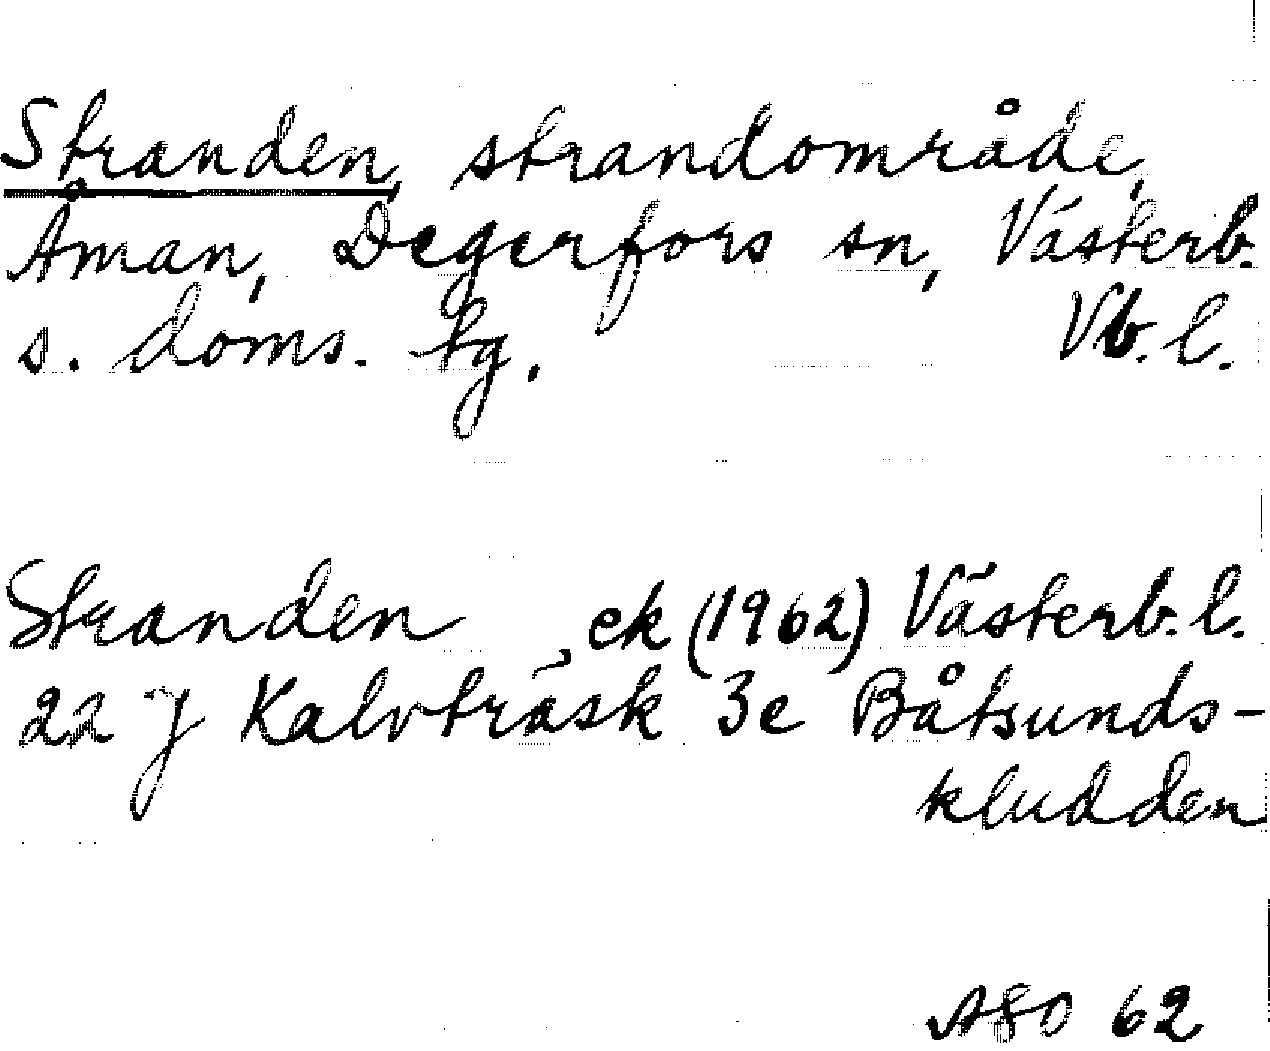 Stranden, strandområde,
Åman, Degerfors sn, Västerb.
s. doms. tg. Vb. l.
Stranden, ek (1962) Västerb. l.
22 J Kalvträsk 3e Båtsunds-
kludden
62